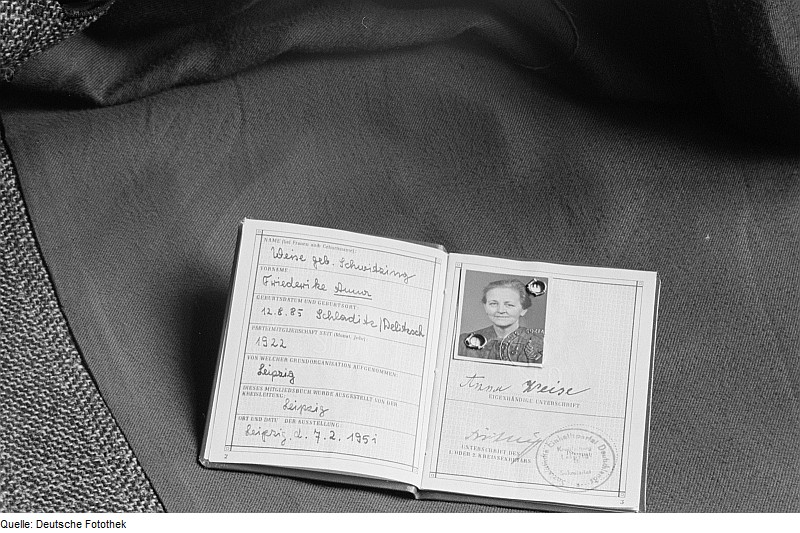 NAME (bei Frauen auch Geburtsname):
Weise geb. Schwidzing
VORNAME:
Friederike Anna
GEBURTSDATUM UND GEBURTSORT:
12.8.85 Schladitz/Delitzsch
PARTEIMITGLIEDSCHAFT SEIT (Monat, Jahr):
1922
VON WELCHER GRUNDORGANISATION AUFGENOMMEN:
Leipzig
DIESES MITGLIEDSBUCH WURDE AUSGESTELLT VON DER
KREISLEITUNG:
Leipzig
ORT UND DATUM DER AUSSTELLUNG:
Leipzig. d. 7.2.1951
2
Anna Weise
EIGENHÄNDIGE UNTERSCHRIFT
UNTERSCHRIFT DES
1. ODER 2. KREISSEKRETÄRS
Sozialistische Einheitspartei Deutschlands
3
Quelle: Deutsche Fotothek